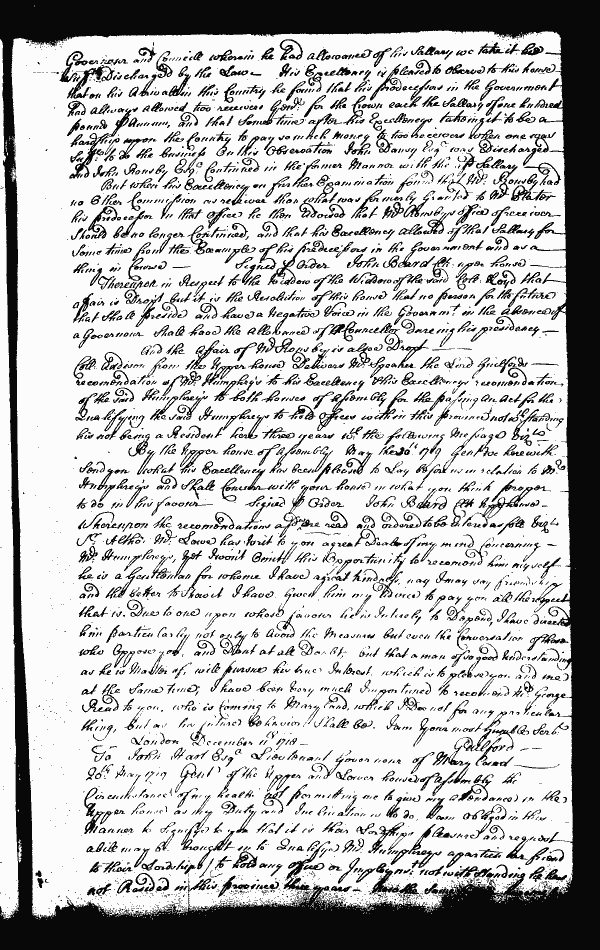 Governour and Councill wherein he had allowance of his Sallary we take it to be
Suff:ly Discharged by the Law — His Excellency is pleased to Observe to this house
that on his Arrivall in this Country he found that his predecessors in the Government
had allways allowed two receivers Gen.ll for the Crown each the Sallary of one hundred
pound p Annum, and that Some time after his Excellencys taking it to be a
hardship upon the Country to pay so much Money to two receivers when one was
Suff:t to do the business On this Observation John Dansy Esq.r was Discharged
and John Rousby Esq.r Continued in the former Manner with his s.d Sallary
But when his Excellency on further Examination found that M.r Rousby had
no Other Commission as receiver than what was formerly Granted to M.r Plater
his predecessor in that office he then Ordered that M.r Rousbys office of receiver
Should be no longer Continued, and that his Excellency allowed of that Sallary for
Some time from the Example of his predecessors in the Government and as a
thing in Course — Signed p Order John Beard Clk upon house
Thereupon in Respect to the Widdow of the said Coll. Lloyd that
affair is Dropt but it is the Resolution of this house that no person for the future
that Shall preside and have a Negative Voice in the Governm.t in the Absence of
a Governour Shall have the Allowance of a Councellor dureing his presidency
And the Affair of M.r Rousby is algoe Dropt
Coll. Addison from the Upper house Delivers M.r Speaker the Lord Guilfords
recomendation of M.r Humphreys to his Excellency & his Excellencys recomendation
of the said Humphreys to both houses of Assembly for the passing An Act for the
Qualifying the said Humphreys to hold Offices within this province notw.thstanding
his not being a Resident here three years w.th the following Message Viz.t
By the Upper house of Assembly May the 20.th 1719 Gent.n We herewith
Send you what his Excellency has been pleased to Lay before us in relation to M.r
Humphreys and Shall Concurr with your house in what you think proper
to do in his favour — Signed p Order John Beard Clk Upp house
Whereupon the recomendations afd. were read and ordered to be Entered as foll. Viz.t
S.r Altho. M.r Lowe has writ to you a great Deale of my mind Concerning
M.r Humphreys, Yet I wont Omitt this Opportunity to recomend him my self
he is a Gentleman for whome I have a great kindness, nay I may say friendship
and the better to Shew it I have Given him my Advice to pay you all the respect
that is Due to one upon whose favour he is Intirely to Depend, I have directed
him particularly not only to Avoid the Measures but even the Conversation of those
who Oppose you, and I dont at all Doubt, but that a man of so good Understanding
as he is Master of, will pursue his true Interest, which is to please you and me
at the Same time, I have been very much Importuned to recomend M.r George
Read to you, who is Coming to Maryland, which I Doe not for any particular
thing, but as his future behavior Shall be. I am Your most humble Serv.t
London December 11.th 1718 — Guilford
To John Hart Esq.r Lieutenant Governour of Maryland
20.th May 1719 Gent.n of the Upper and Lower houses of Assembly the
Circumstance of my health not permitting me to give my attendance in the
Upper house as my Duty and Inclination is to do, I am obliged in this
Manner to Signify to you that it is their Lordships pleasure and request
a bill may be brought in to Qualifye M.r Humphreys a particular friend
to their Lordships to hold any office or Imploym.t notwithstanding he has
not Resided in this province three years